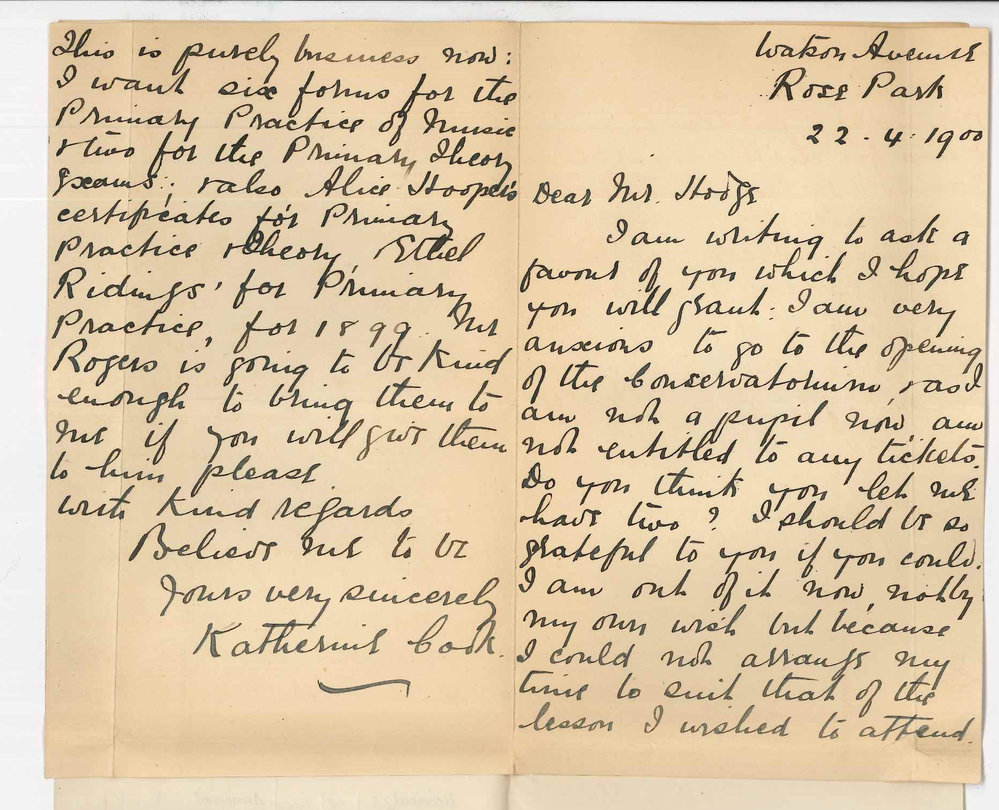 Watson Avenue
Rose Park
22-4-1900
Dear Mr. Hodge
I am writing to ask a
favour of you which I hope
you will grant. I am very
anxious to go to the opening
of the Conservatorium, & as I
am not a pupil now, am
not entitled to any tickets.
Do you think you let me
have two? I should be so
grateful to you if you could.
I am out of it now, not by
my own wish but because
I could not arrange my
time to suit that of the
lesson I wished to attend.
This is purely business now:
I want six forms for the
Primary Practice of Music
& two for the Primary Theory
Exams; & also Alice Hooper's
certificates for Primary
Practice & Theory, Ethel
Ridings' for Primary
Practice, for 1899. Mr
Rogers is going to be kind
enough to bring them to
me if you will give them
to him please
with kind regards
Believe me to be
Yours very sincerely
Katherine Cook.